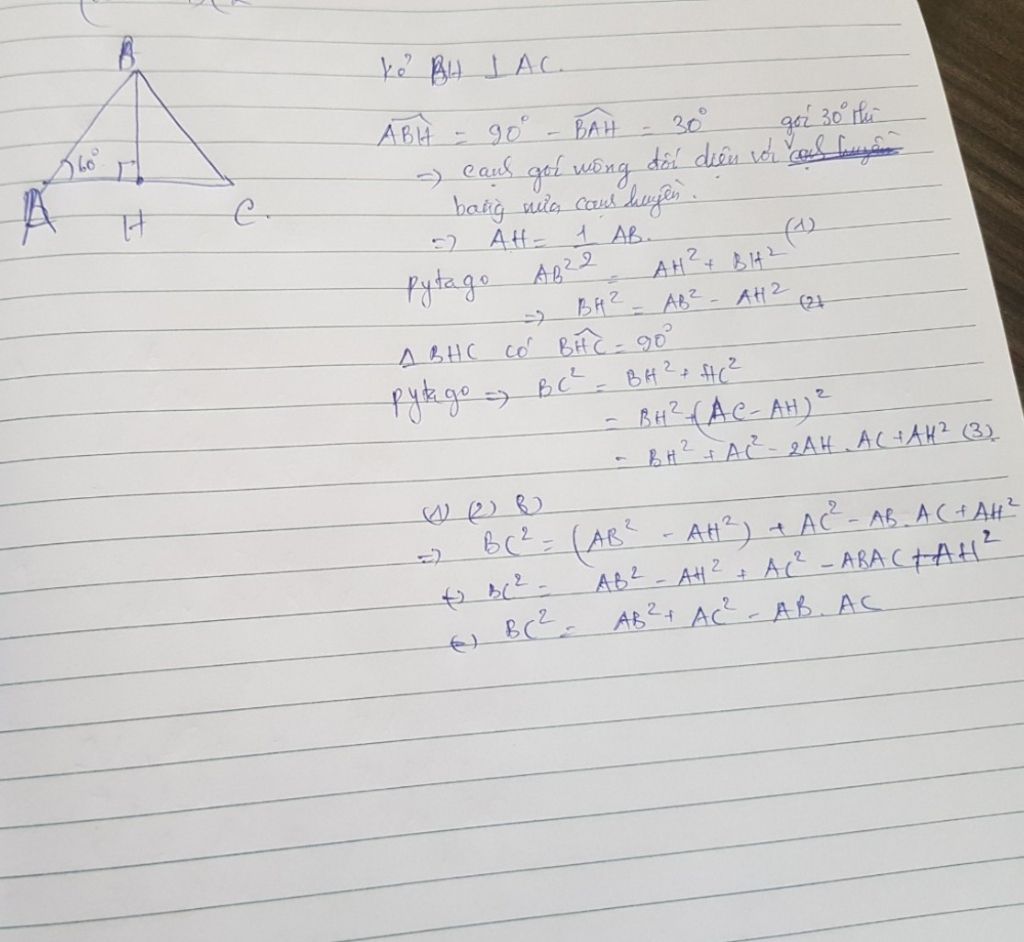 B
60°
A
H
C.
kẻ BH ⊥ AC.
\widehat{ABH} = 90° - \widehat{BAH} = 30°
góc 30° thì
=> cạnh góc vuông đối diện với
bằng nửa cạnh huyền.
=> AH = 1/2 AB. (1)
pytago AB² = AH² + BH²
=> BH² = AB² - AH² (2)
Δ BHC có \widehat{BHC} = 90°
pytago => BC² = BH² + HC²
= BH² + (AC - AH)²
= BH² + AC² - 2AH . AC + AH² (3)
(1) (2) (3)
=> BC² = (AB² - AH²) + AC² - AB. AC + AH²
<=> BC² = AB² - AH² + AC² - ABAC + AH²
<=> BC² = AB² + AC² - AB. AC